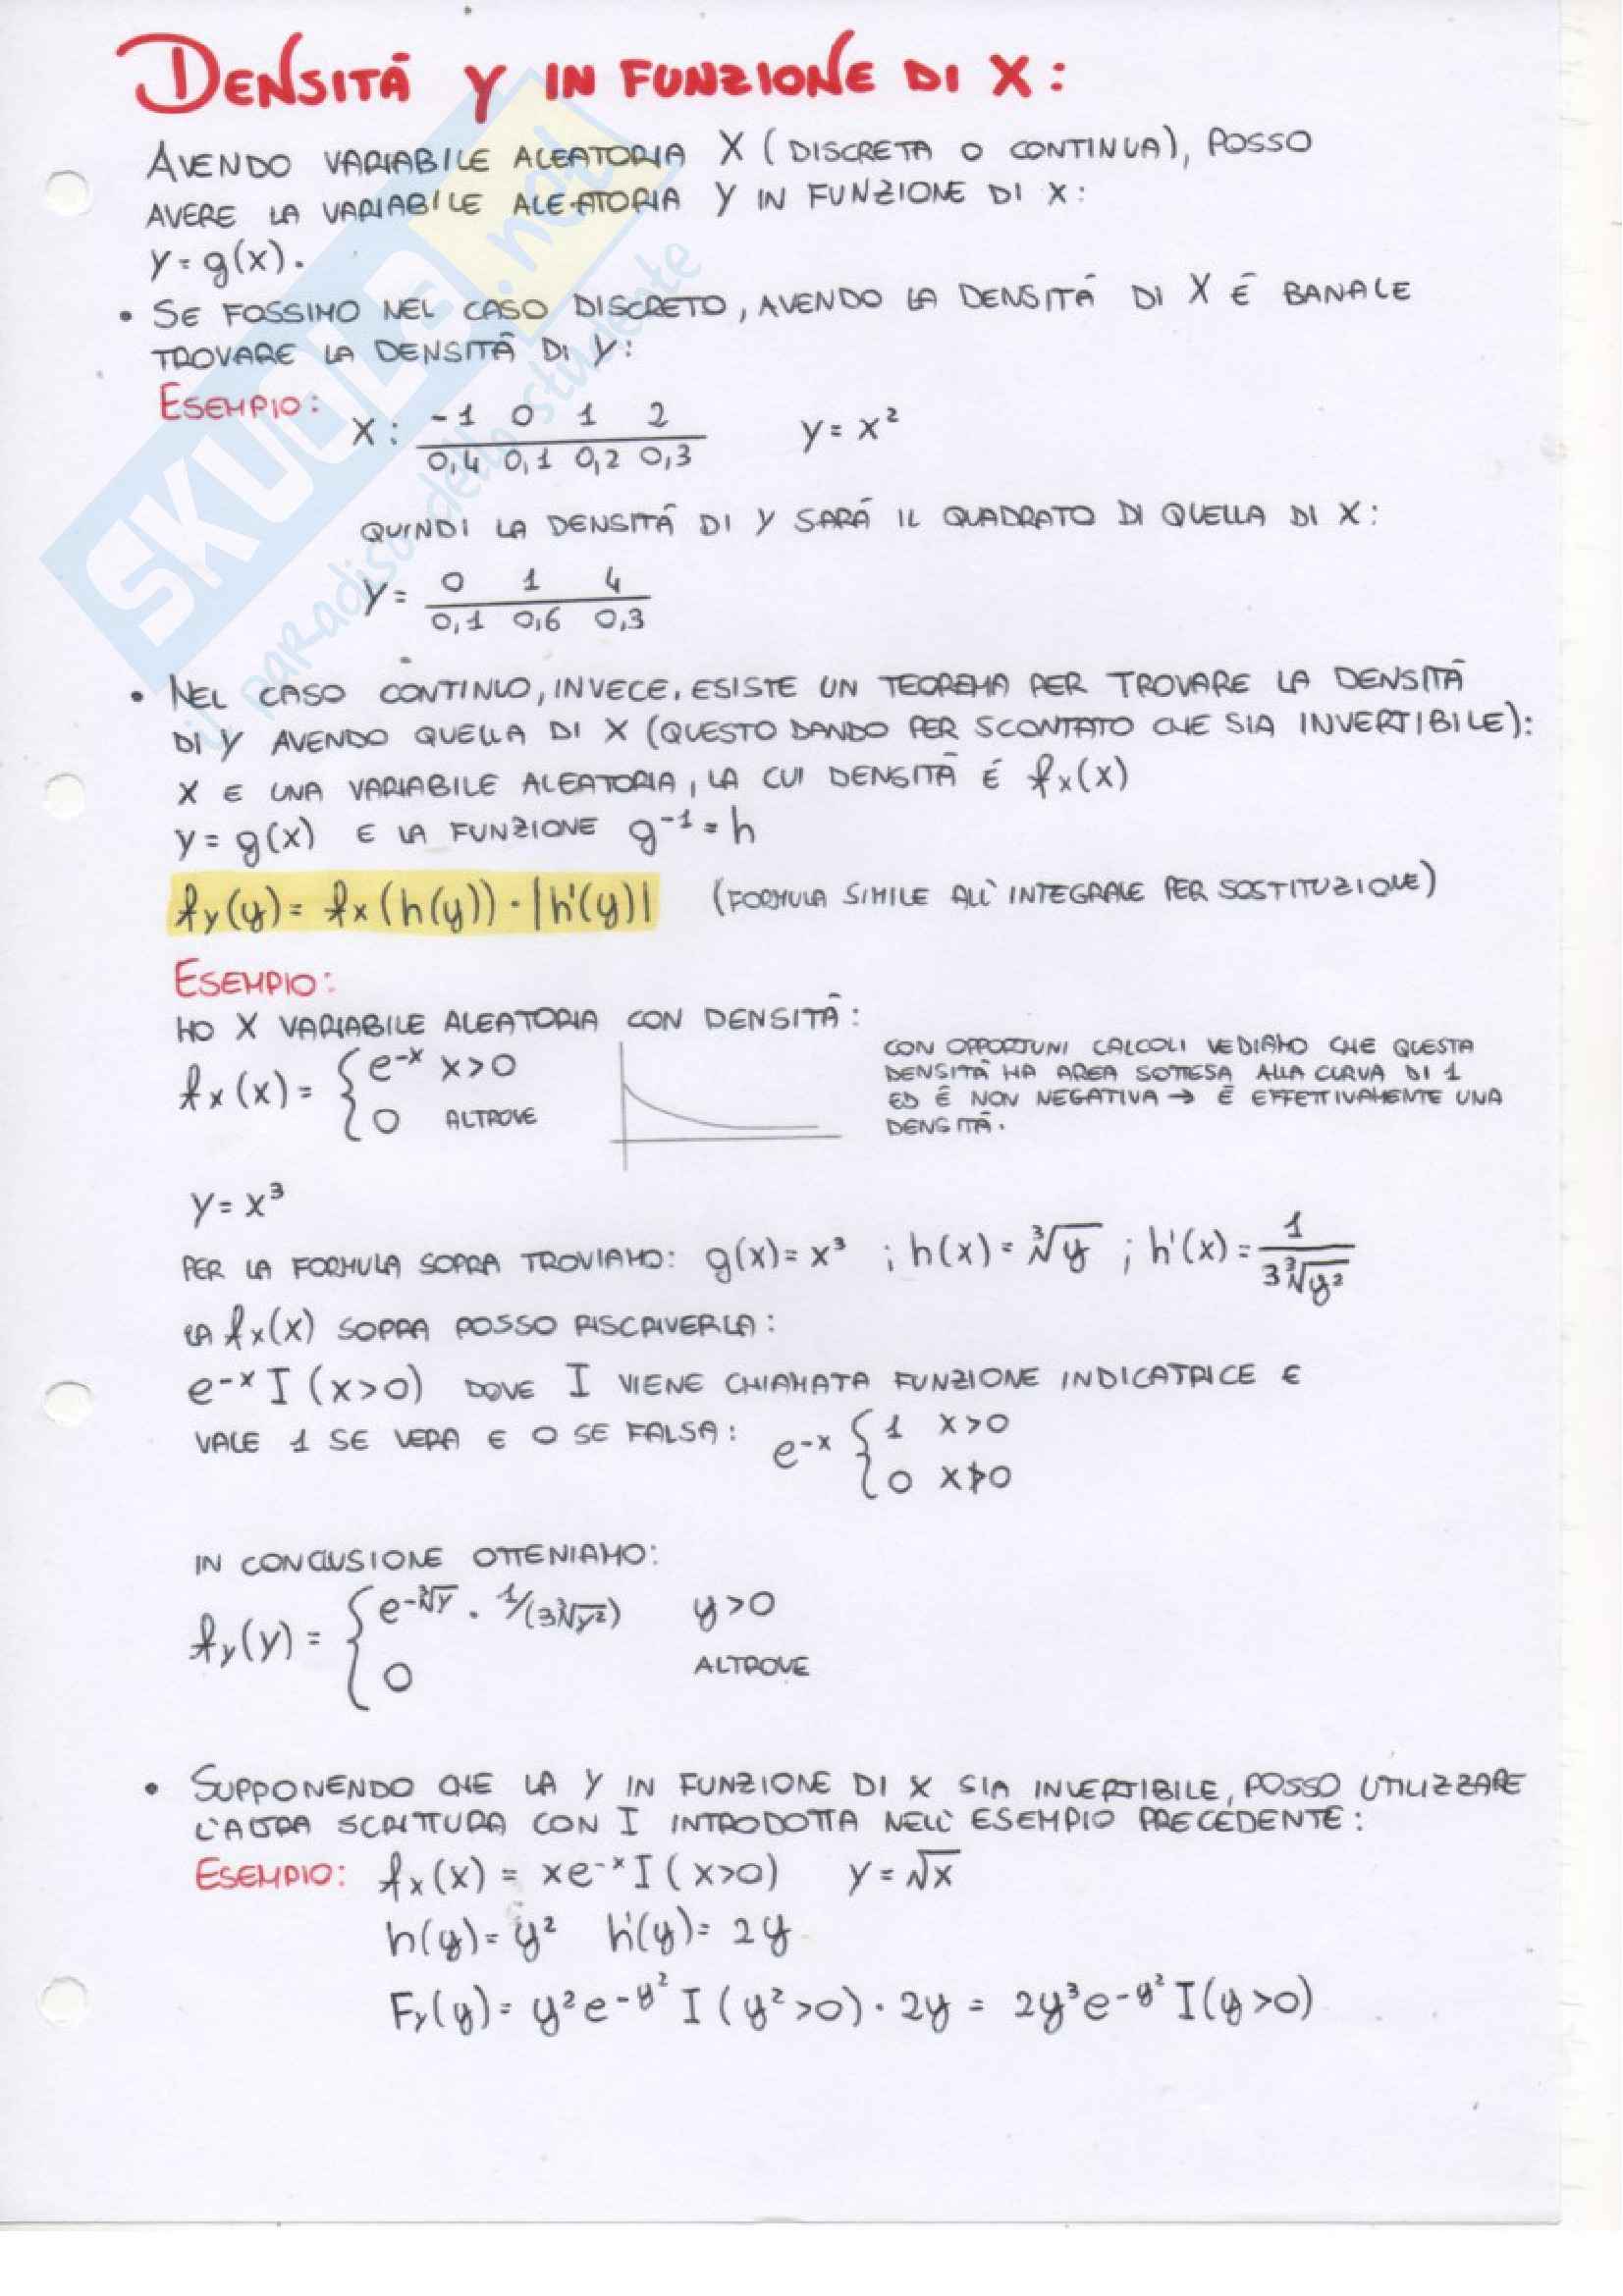 DENSITÁ Y IN FUNZIONE DI X:
AVENDO VARIABILE ALEATORIA X (DISCRETA O CONTINUA), POSSO
AVERE LA VARIABILE ALEATORIA Y IN FUNZIONE DI X:
Y=g(X).
• SE FOSSIMO NEL CASO DISCRETO, AVENDO LA DENSITÁ DI X É BANALE
TROVARE LA DENSITÁ DI Y:
ESEMPIO:
X: -1 0 1 2 Y=X²
0,4 0,1 0,2 0,3
QUINDI LA DENSITÁ DI Y SARÁ IL QUADRATO DI QUELLA DI X:
Y= 0 1 4
0,1 0,6 0,3
• NEL CASO CONTINUO, INVECE, ESISTE UN TEOREMA PER TROVARE LA DENSITÁ
DI Y AVENDO QUELLA DI X (QUESTO DANDO PER SCONTATO CHE SIA INVERTIBILE):
X E UNA VARIABILE ALEATORIA, LA CUI DENSITÁ É fx(x)
Y=g(X) E LA FUNZIONE g⁻¹=h
fy(y)= fx(h(y))·|h'(y)| (FORMULA SIMILE ALL'INTEGRALE PER SOSTITUZIONE)
ESEMPIO:
HO X VARIABILE ALEATORIA CON DENSITÁ:
fx(x)= { e⁻ˣ x>0
0 ALTROVE
CON OPPORTUNI CALCOLI VEDIAMO CHE QUESTA
DENSITÁ HA AREA SOTTESA ALLA CURVA DI 1
ED É NON NEGATIVA → É EFFETTIVAMENTE UNA
DENSITÁ.
Y=X³
PER LA FORMULA SOPRA TROVIAMO: g(x)=x³ ; h(x)=∛y ; h'(x)=1/(3∛y²)
LA fx(x) SOPRA POSSO RISCRIVERLA:
e⁻ˣ I (x>0) DOVE I VIENE CHIAMATA FUNZIONE INDICATRICE E
VALE 1 SE VERA E 0 SE FALSA: e⁻ˣ { 1 x>0
0 x≯0
IN CONCLUSIONE OTTENIAMO:
fy(y)= { e^(-∛y) · 1/(3∛y²) y>0
0 ALTROVE
• SUPPONENDO CHE LA Y IN FUNZIONE DI X SIA INVERTIBILE, POSSO UTILIZZARE
L'ALTRA SCRITTURA CON I INTRODOTTA NELL'ESEMPIO PRECEDENTE:
ESEMPIO: fx(x) = xe⁻ˣ I (x>0) Y=√x
h(y)= y² h'(y)= 2y
Fy(y)= y²e^(-y²) I (y²>0)·2y = 2y³e^(-y²) I(y>0)
SKUOLA.net
il paradiso dello studente